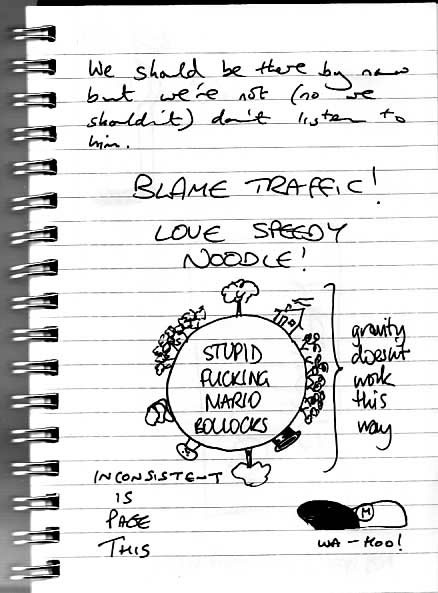 We should be there by now
but we're not (no we
shouldn't) don't listen to
him.
BLAME TRAFFIC!
LOVE SPEEDY
NOODLE!
STUPID
FUCKING
MARIO
BOLLOCKS
gravity
doesn't
work
this
way
INCONSISTENT
IS
PAGE
THIS
M
WA-HOO!